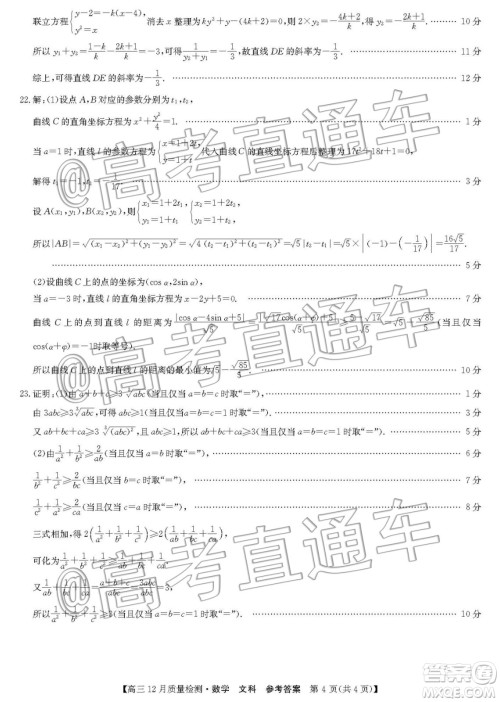 联立方程{y-2=-k(x-4), 消去 x 整理为 ky²+4y-(4k+2)=0，则 2y₂=-(4k+2)/k，得 y₂=-(2k+1)/k. …… 10 分
所以 …… 11 分
综上，可得直线 DE 的斜率为-1/3. …… 12 分
22.解：(1)设点 A，B 对应的参数分别为 t₁，t₂，
曲线 C 的直角坐标方程为 x²+y²/4=1. …… 2 分
当 a=1 时，直线 l 的参数方程为{x=1+2t, y=1+t 代入曲线 C 的直角坐标方程后整理为 17t²+18t+1=0，
解得 t₁=-1，t₂=-1/17. …… 3 分
设 A(x₁，y₁)，B(x₂，y₂)，有{x₁=1+2t₁ y₁=1+t₁，{x₂=1+2t₂ y₂=1+t₂
所以|AB|=√((x₁-x₂)²+(y₁-y₂)²)=√(4(t₂-t₁)²+(t₂-t₁)²)=√5|t₁-t₂|=√5×|(-1)-(-1/17)|=16√5/17
…… 5 分
(2)设曲线 C 上的点的坐标为(cos α，2sin α)，
当 a=-3 时，直线 l 的直角坐标方程为 x-2y+5=0. …… 7 分
曲线 C 上的点到直线 l 的距离为|cos α-4sin α+5|/√5=|√17cos(α+φ)+5|/√5 (当且仅当
cos(α+φ)=-1 时取等号).
所以曲线 C 上的点到直线 l 的距离的最小值为√5-√85/5. …… 10 分
23.证明：(1)由 a+b+c≥3∛abc (当且仅当 a=b=c 时取“=”). …… 1 分
由 3abc≥3∛abc，可得 abc≥1(当且仅当 a=b=c=1 时取“=”). …… 3 分
又 ab+bc+ca≥3∛(abc)²≥3(当且仅当 a=b=c=1 时取“=”). …… 5 分
(2)由1/a²+1/b²≥2/ab(当且仅当 a=b 时取“=”)， …… 6 分
1/b²+1/c²≥2/bc(当且仅当 b=c 时取“=”)， …… 7 分
1/c²+1/a²≥2/ca(当且仅当 a=c 时取“=”)， …… 8 分
三式相加，得 2(1/a²+1/b²+1/c²)≥2/ab+2/bc+2/ca，
可化为1/a²+1/b²+1/c²≥1/ab+1/bc+1/ca.
又1/ab+1/bc+1/ca=(a+b+c)/abc=3abc/abc=3，
所以1/a²+1/b²+1/c²≥3(当且仅当 a=b=c=1 时取“=”). …… 10 分
【高三 12 月质量检测·数学 文科 参考答案 第 4 页(共 4 页)】
@高考直通车
@高考直通车
@高考直通车